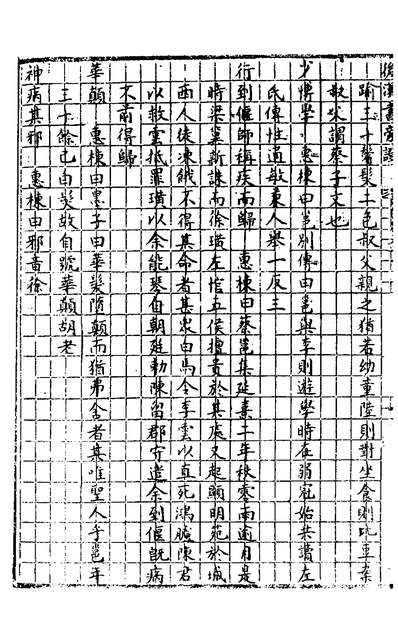 踰三十鬢髮二色叔父親之猶若幼童陸則對坐食則比豆案
叔父謂蔡子文也
少博學 惠棟曰邕別傳曰邕與李則遊學時在弱冠始共讀左
氏傳性通敏兼人舉一反三
行到偃師稱疾而歸 惠棟曰蔡邕集延熹二年秋霖雨逾月是
時梁冀新誅而徐璜左悺五侯擅貴於其處又起顯明苑於城
西人徒凍餓不得其命者甚衆白馬令李雲以直死鴻臚陳君
以救雲抵罪璜以余能琴自朝廷勅陳留郡守遣余到偃師病
不前得歸
華顛 惠棟曰墨子曰華髮隋顛而猶弗舍者其唯聖人乎邕年
三十餘已白髮故自號華顛胡老
神病其邪 惠棟曰邪音徐